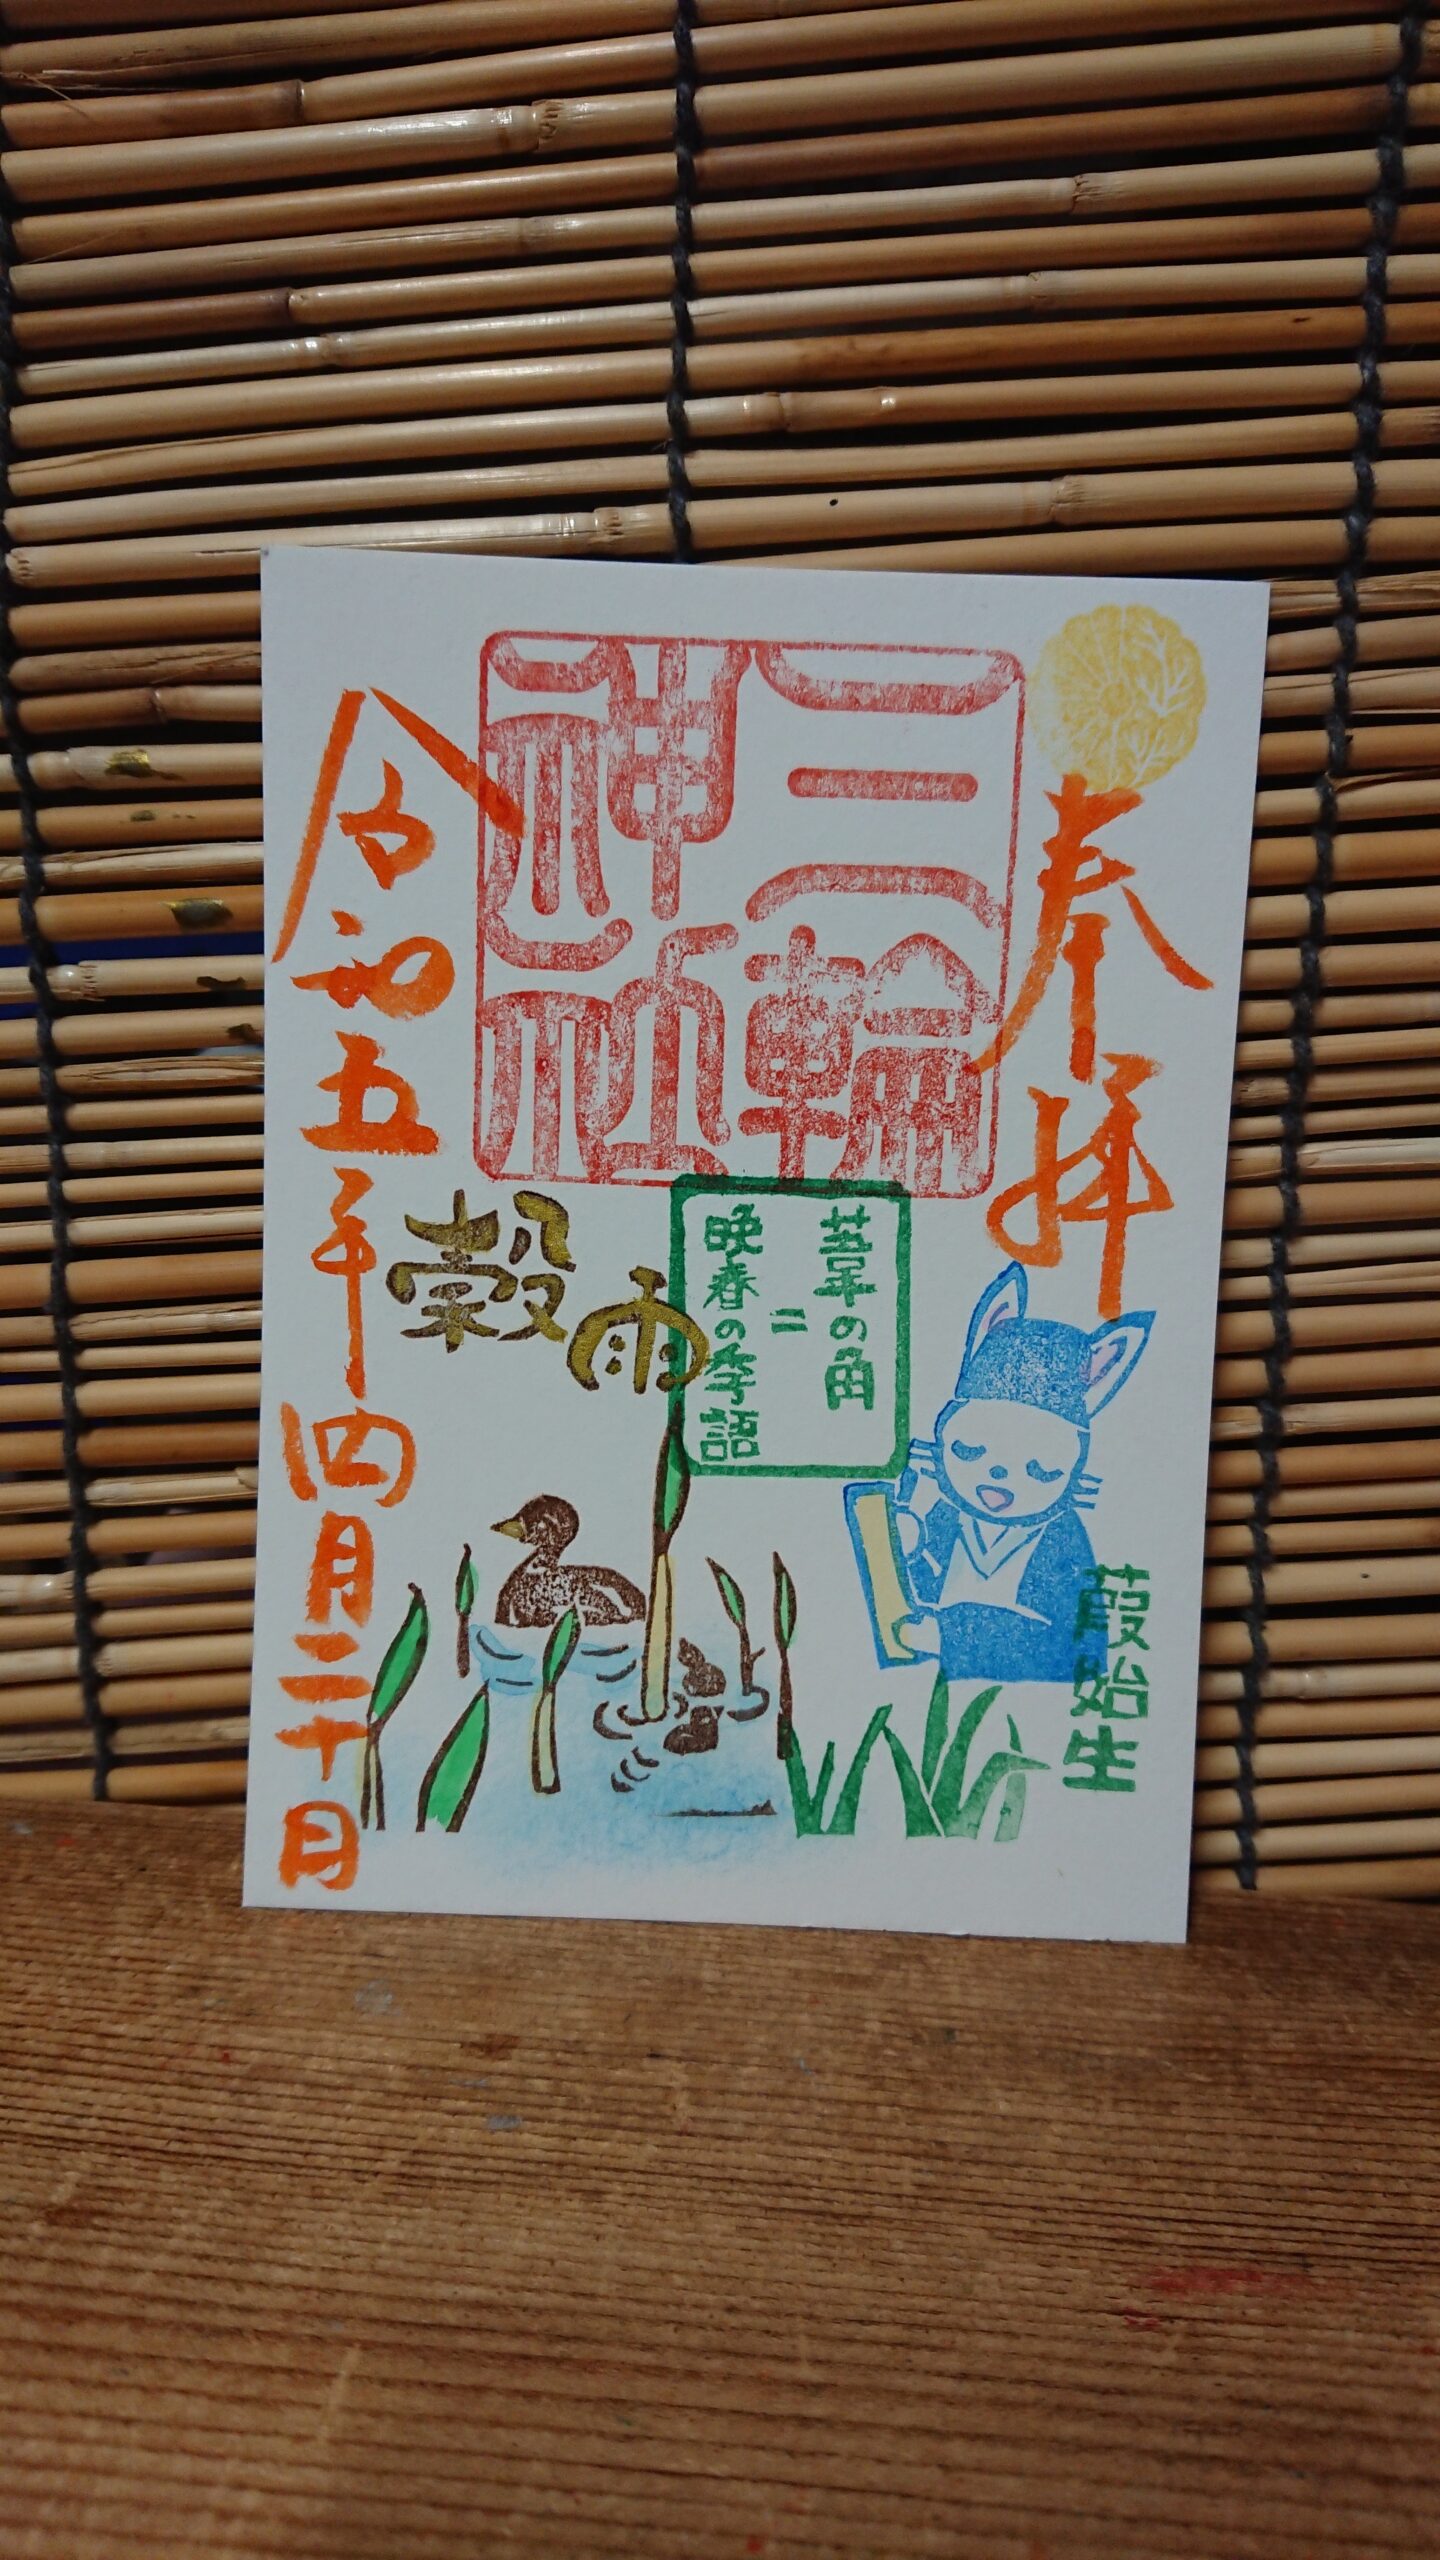 奉拝
三輪
神社
葦の角
＝
晩春の季語
穀雨
葭始生
令和五年四月二十日